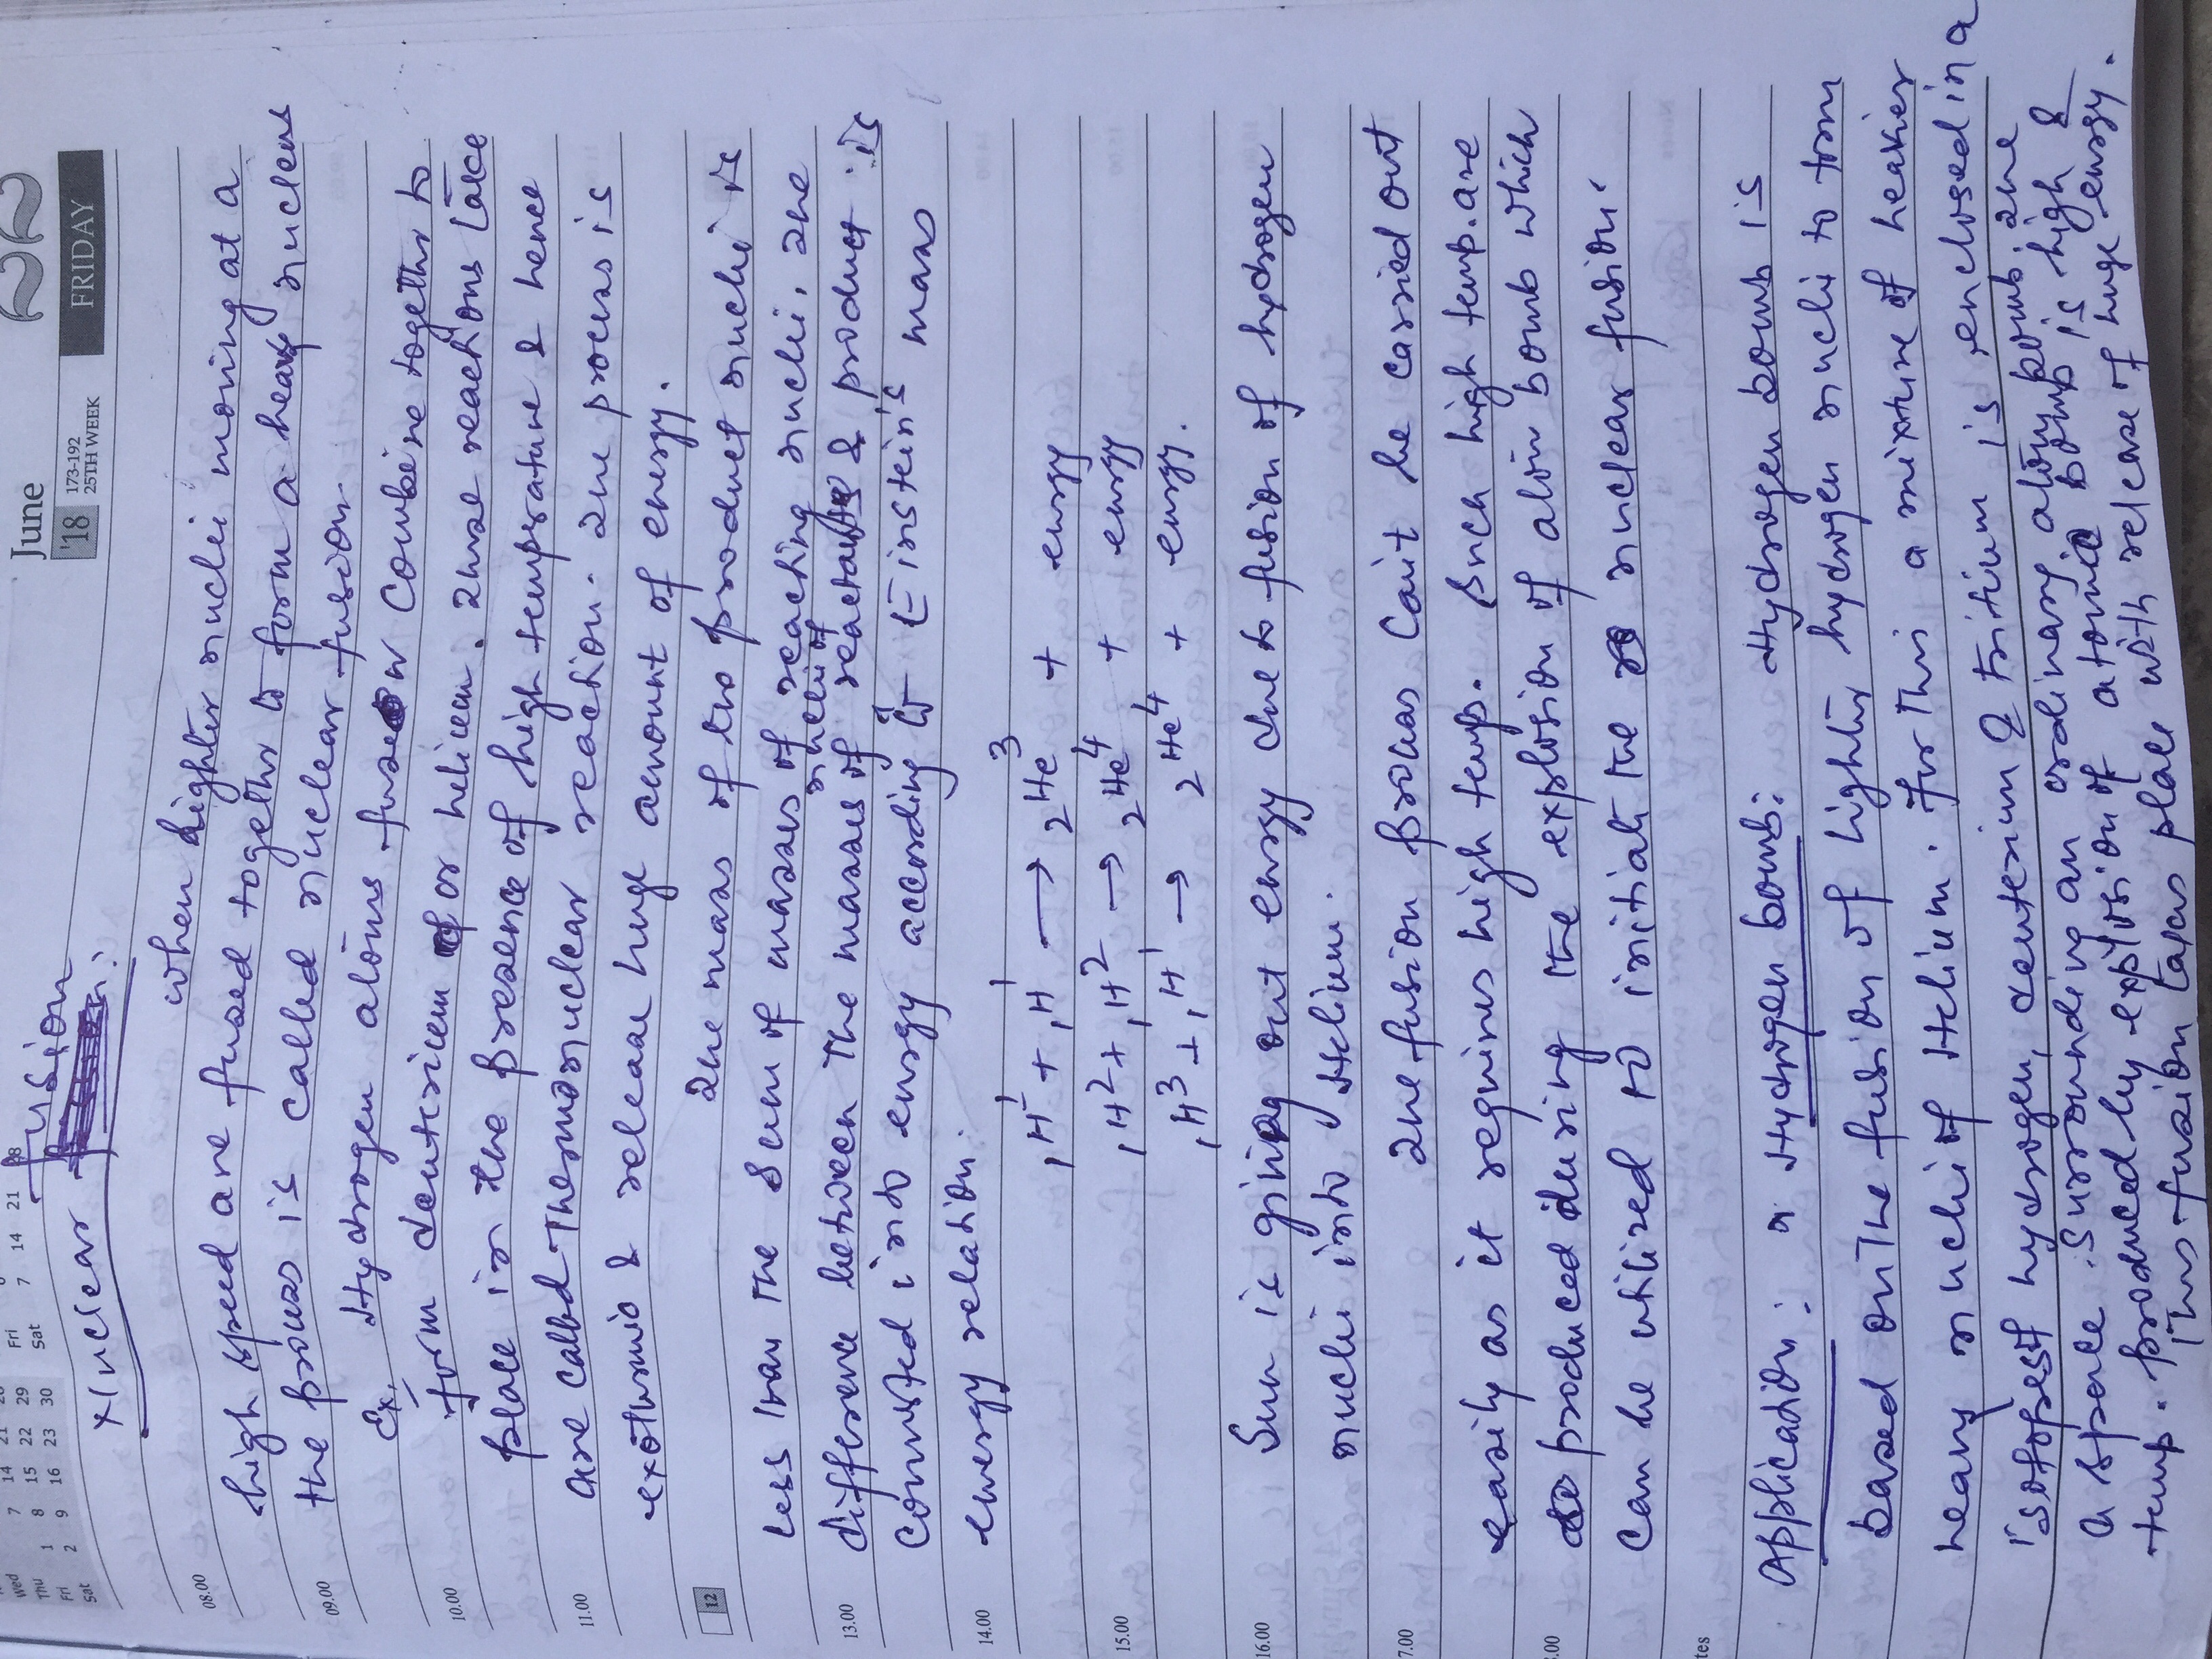 June
22
'18
173-192
25TH WEEK
FRIDAY
Wed 7 14 21 28
Thu 1 8 15 22 29
Fri 2 9 16 23 30
Sat
Fri
Sat 7 14 21 28
Nuclear fusion
08.00
when lighter nuclei moving at a
high speed are fused together to form a heavy nucleus
09.00
the process is called nuclear fusion.
Ex, Hydrogen atoms fuse or combine together to
10.00
form deuterium or helium. These reactions take
place in the presence of high temperature & hence
11.00
are called Thermonuclear reaction. The process is
exothermic & release huge amount of energy.
12
The mass of two product nuclei is
less than the sum of masses of reacting nuclei. The
13.00
nuclei of
difference between the masses of reactants & product is
converted into energy according to Einstein's mass
14.00
energy relation.
₁H¹ + ₁H¹ → ₂He³ + energy
15.00
₁H² + ₁H² → ₂He⁴ + energy
₁H³ + ₁H¹ → ₂He⁴ + energy.
16.00
Sun is giving out energy due to fusion of hydrogen
nuclei into Helium.
7.00
The fusion process can't be carried out
easily as it requires high temp. Such high temp. are
8.00
produced during the explosion of atom bomb which
can be utilized to initiate the nuclear fusion.
tes
Application: Hydrogen bomb: Hydrogen bomb is
based on the fusion of lighter hydrogen nuclei to form
heavy nuclei of Helium. For this a mixture of heavier
isotopes of hydrogen, deuterium & tritium is enclosed in a
a space surrounding an ordinary atom bomb. The
temp. produced by explosion of atomic bomb is high &
this fusion takes place with release of huge energy.